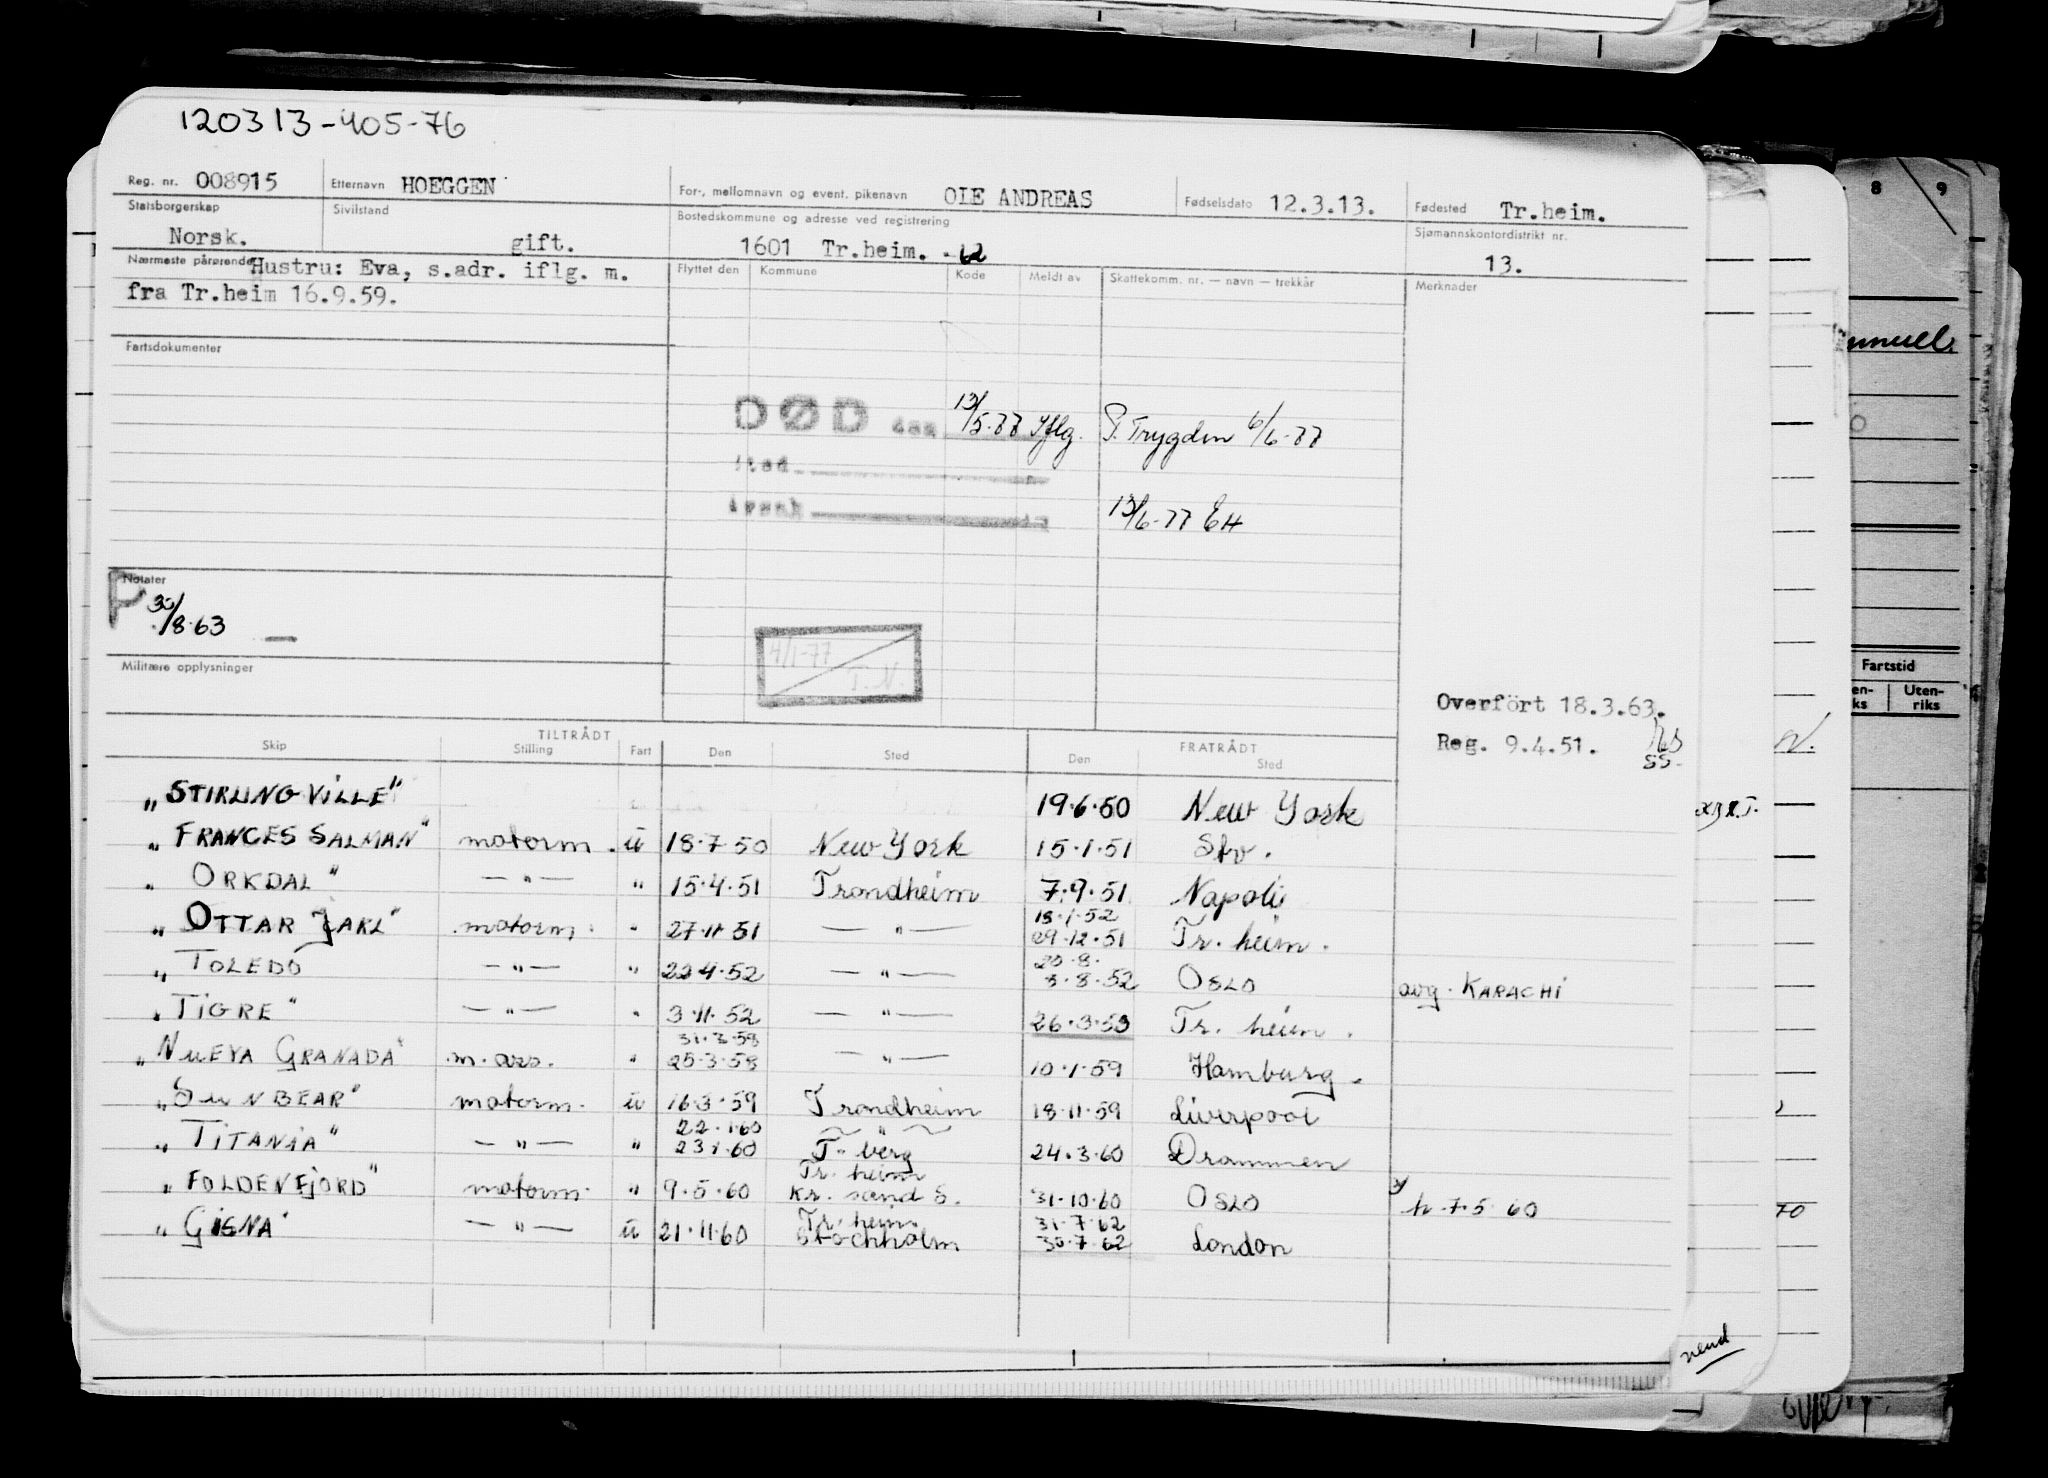 120313-405-76
Reg. nr. 008915 Etternavn HOEGGEN For-, mellomnavn og event. pikenavn OLE ANDREAS Fødselsdato 12.3.13. Fødested Tr.heim.
Statsborgerskap Norsk. Sivilstand gift. Bostedskommune og adresse ved registrering 1601 Tr.heim. -62 Sjømannskontordistrikt nr. 13.
Nærmeste pårørende Hustru: Eva, s.adr. iflg. m.
fra Tr.heim 16.9.59.
Flyttet den Kommune Kode Meldt av Skattekomm. nr. — navn — trekkår Merknader
Fartsdokumenter
DØD den 13/5-77 Iflg. P.Trygden 6/6-77
sted
13/6-77 EH
Notater
P 30/8-63 —
4/1-77 T.N.
Militære opplysninger
Overført 18.3.63.
Reg. 9.4.51.
SS-
TILTRÅDT FRATRÅDT
Skip Stilling Fart Den Sted Den Sted
„STIRLINGVILLE" 19.6.50 New York
„FRANCES SALMAN" motorm. u 18.7.50 New York 15.1.51 Stv.
„ORKDAL" —"— " 15.4.51 Trondheim 7.9.51 Napoli
18.1.52
„OTTAR JARL" motorm. " 27.11.51 —"— 29.12.51 Tr. heim.
20.8.
„TOLEDO —"— " 22.4.52 —"— 3.8.52 OSLO avg. KARACHI
„TIGRE" —"— " 3.11.52 —"— 26.3.53 Tr. heim.
31.3.58
„NUEVA GRANADA" m. ass. " 25.3.58 —"— 10.1.59 Hamburg.
„SUNBEAR" motorm. u 16.3.59 Trondheim 18.11.59 Liverpool
22.1.60 —"—
„TITANIA" —"— " 23.1.60 T. berg 24.3.60 Drammen
Tr. heim
„FOLDENFJORD" motorm. " 9.5.60 Kr. sand S. 31.10.60 OSLO h 7.5 60
Tr. heim. 31.7.62
„GISNA" —"— u 21.11.60 Stockholm 30.7.62 London
vend
8 9
Fartstid
Uten-
riks
70